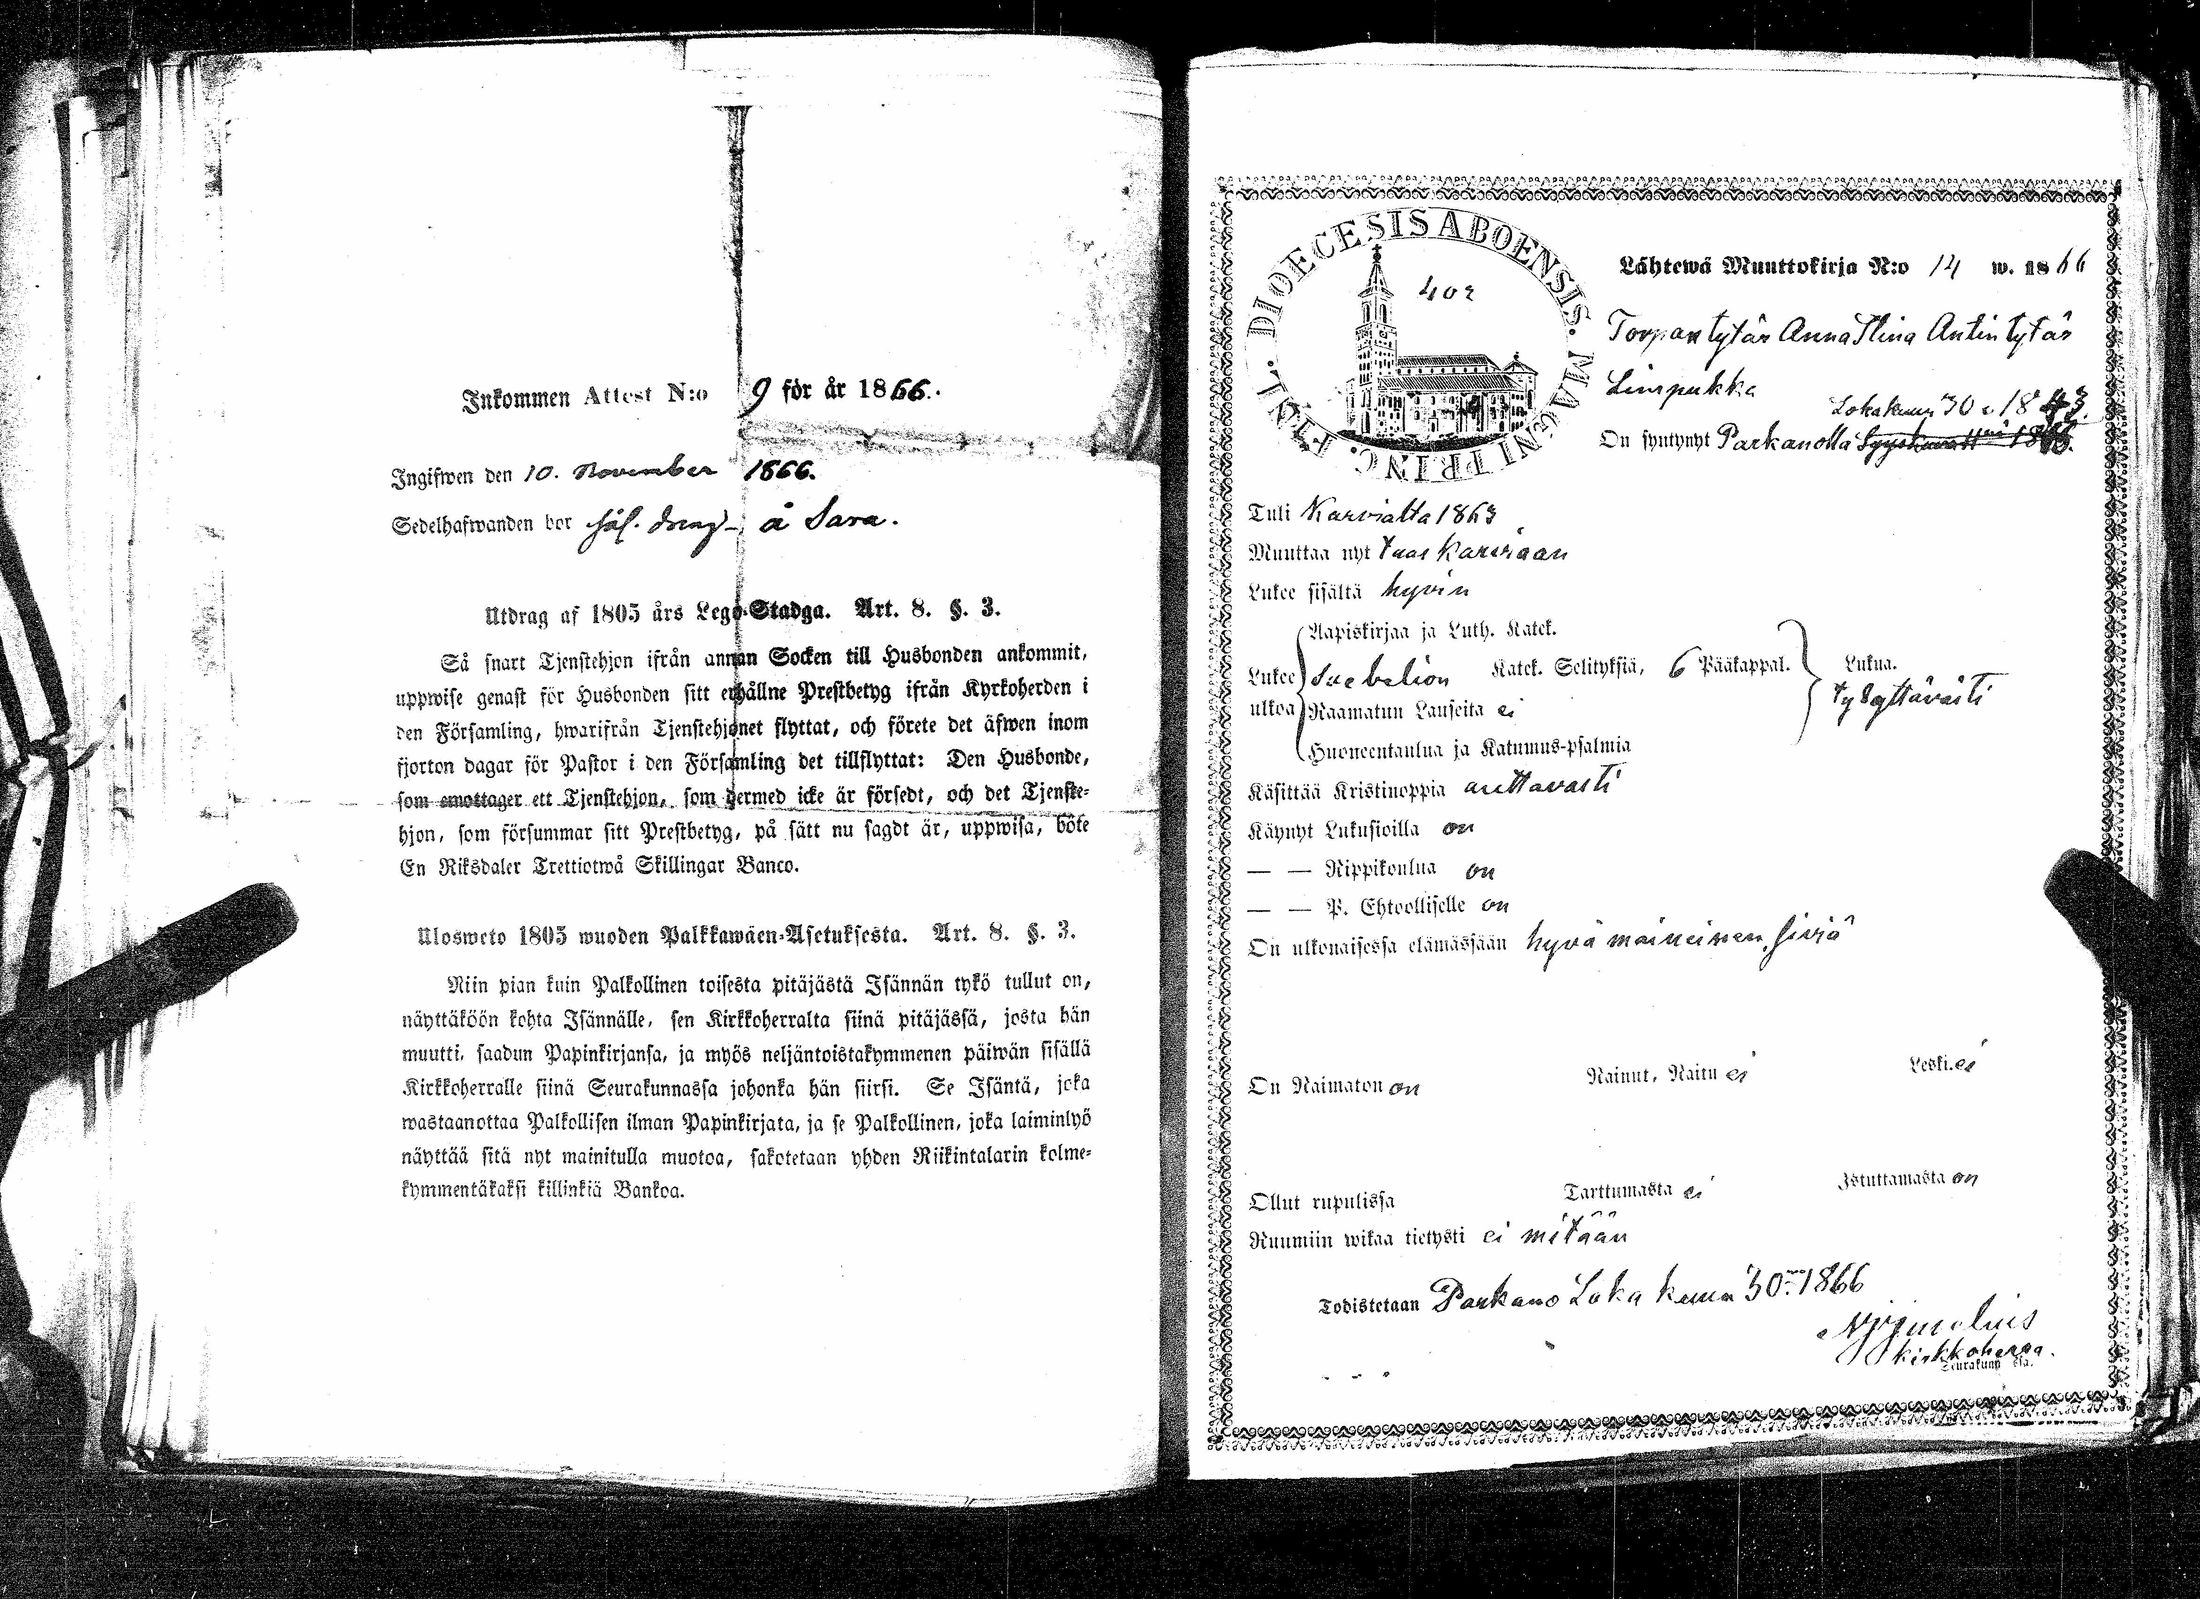 Inkommen Attest N:o 9 för år 1866.
Ingifwen den 10. November 1866.
Sedelhafwanden bor å Sara.
Utdrag af 1805 års Lego-Stadga. Art. 8. §. 3.
Så snart Tjenstehjon ifrån annan Socken till Husbonden ankommit,
uppwise genast för Husbonden sitt erhållne Prestbetyg ifrån Kyrkoherden i
den Församling, hwarifrån Tjenstehjonet flyttat, och förete det äfwen inom
fjorton dagar för Pastor i den Församling det tillflyttat: Den Husbonde,
som emottager ett Tjenstehjon, som dermed icke är försedt, och det Tjenste-
hjon, som försummar sitt Prestbetyg, på sätt nu sagdt är, uppwisa, böte
En Riksdaler Trettiotwå Skillingar Banco.
Ulosweto 1805 wuoden Palkkawäen-Asetuksesta. Art. 8. §. 3.
Niin pian kuin Palkollinen toisesta pitäjästä Isännän tykö tullut on,
näyttäköön kohta Isännälle, sen Kirkkoherralta siinä pitäjässä, josta hän
muutti, saadun Papinkirjansa, ja myös neljäntoistakymmenen päiwän sisällä
Kirkkoherralle siinä Seurakunnassa johonka hän siirsi. Se Isäntä, joka
wastaanottaa Palkollisen ilman Papinkirjata, ja se Palkollinen, joka laiminlyö
näyttää sitä nyt mainitulla muotoa, sakotetaan yhden Riikintalarin kolme-
kymmentäkaksi killinkiä Bankoa.
DIOECESIS ABOENSIS. MAGNI PRINC. FINL.
402
Lähtewä Muuttokirja N:o 14 w. 1866
Torpan tytär Anna Stina Antin tytär
Linnpukka
Lokakuun 30 p 1843.
On syntynyt Parkanolla Syyskuun
Tuli Karvialta 1863
Muuttaa nyt taas Karviaan
Lukee sisältä hyvin
Aapiskirjaa ja Luth. Katek.
Lukee Svebelion Katek. Selityksiä, 6 Pääkappal. Lukua.
ulkoa Raamatun Lauseita ei tydyttävästi
Huoneentaulua ja Katumus-psalmia
Käsittää Kristinoppia auttavasti
Käynyt Lukusioilla on
— — Rippikoulua on
— — P. Ehtoolliselle on
On ulkonaisessa elämässään hyvä maineinen, siviä
On Naimaton on Nainut, Naitu ei Leski ei
Ollut rupulissa Tarttumasta ei Istuttamasta on
Ruumiin wikaa tietysti ei mitään
Todistetaan Parkano Loka kuun 30 p. 1866
kirkkoherra.
Seurakunn ssa.